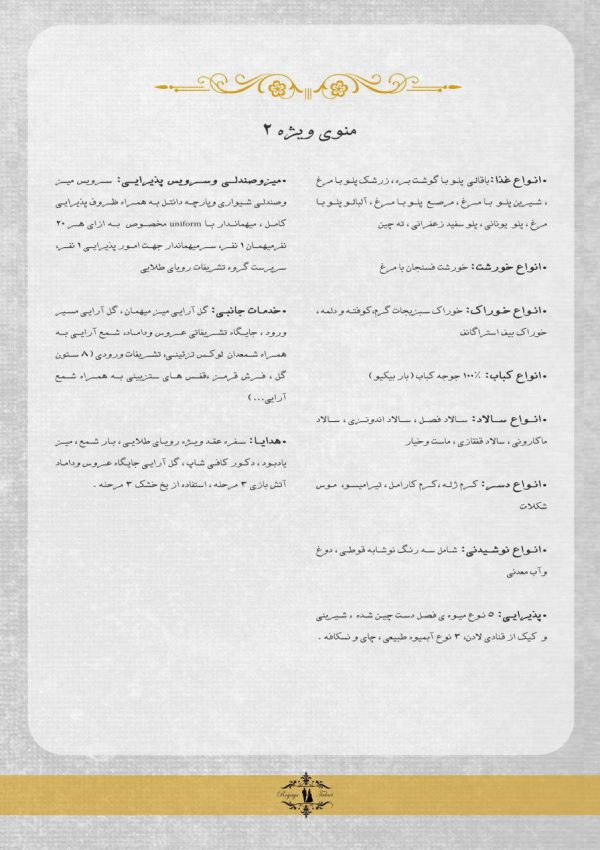 منوی ویژه ۲
•انواع غذا: باقالی پلو با گوشت بره ، زرشک پلو با مرغ
، شیرین پلو با مرغ ، مرصع پلو با مرغ ، آلبالو پلو با
مرغ ، پلو یونانی ، پلو سفید زعفرانی ، ته چین
•انواع خورشت: خورشت فسنجان با مرغ
•انواع خوراک: خوراک سبزیجات گرم،کوفته و دلمه ،
خوراک بیف استراگانف
•انواع کباب: ۱۰۰٪ جوجه کباب ( بار بیکیو )
•انواع سالاد: سالاد فصل ، سالاد اندونزی ، سالاد
ماکارونی ، سالاد قفقازی ، ماست وخیار
•انواع دسر: کرم ژله ،کرم کارامل ، تیرامیسو، موس
شکلات
•انواع نوشیدنی: شامل سه رنگ نوشابه قوطی ، دوغ
وآب معدنی
•پذیرایی: ۵ نوع میوه ی فصل دست چین شده ، شیرینی
و کیک از قنادی لادن، ۳ نوع آبمیوه طبیعی ، چای و نسکافه .
•میزوصندلی وسرویس پذیرایی: سرویس میز
وصندلی شیواری وپارچه دانتل به همراه ظروف پذیرایی
کامل ، میهماندار با uniform مخصوص به ازای هر ۲۰
نفرمیهمان ۱ نفر، سرمیهماندار جهت امور پذیرایی ۱ نفر،
سرپرست گروه تشریفات رویای طلایی
•خدمات جانبی: گل آرایی میز میهمان، گل آرایی مسیر
ورود ، جایگاه تشریفاتی عروس وداماد، شمع آرایی به
همراه شمعدان لوکس تزئینی، تشریفات ورودی ( ۸ ستون
گل ، فرش قرمز ،قفس های ستزیینی به همراه شمع
آرایی... )
•هدایا: سفره عقد ویژه رویای طلایی ، بار شمع ، میز
یادبود ، دکور کافی شاپ ، گل آرایی جایگاه عروس وداماد
آتش بازی ۳ مرحله ، استفاده از یخ خشک ۳ مرحله .